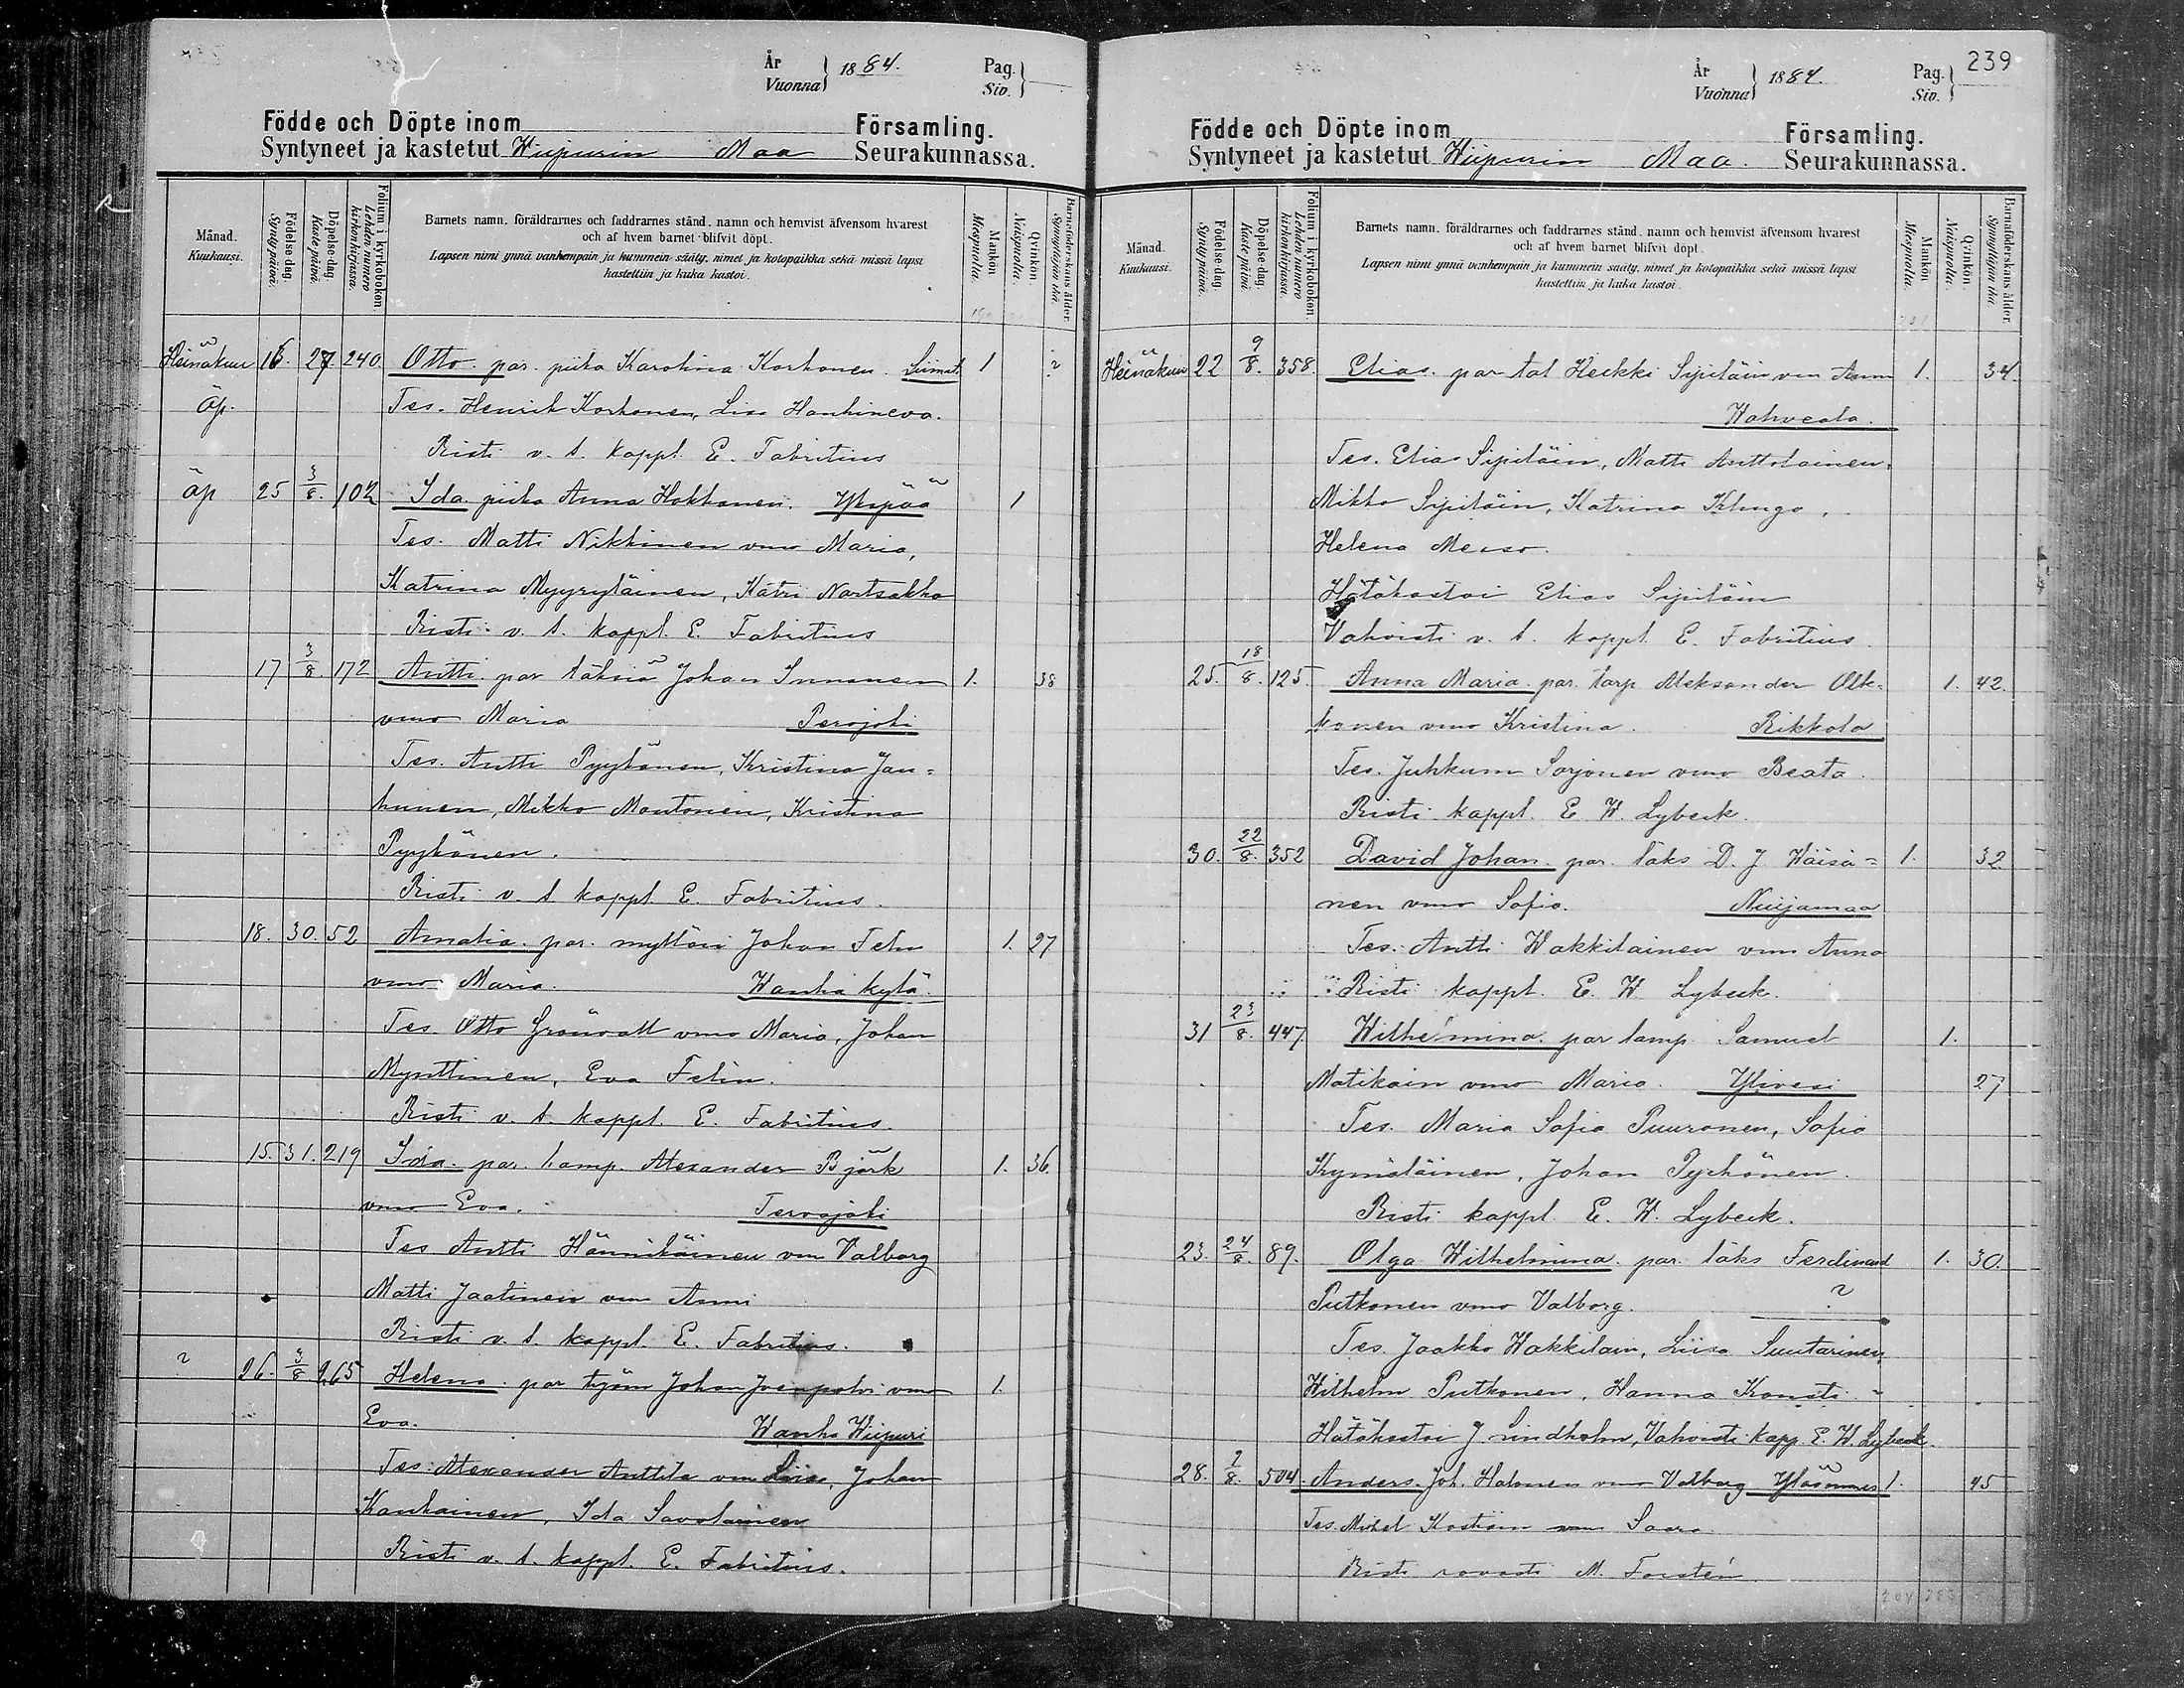 År
Vuonna } 1884. Pag.
Siv. }
Födde och Döpte inom Församling.
Syntyneet ja kastetut Wiipurin Maa Seurakunnassa.
Månad.
Kuukausi.
Födelse-dag.
Syntypäivä.
Döpelse-dag.
Kastepäivä.
Folium i kyrkoboken.
Lehden numero kirkonkirjassa.
Barnets namn, föräldrarnes och faddrarnes stånd, namn och hemvist äfvensom hvarest
och af hvem barnet blifvit döpt.
Lapsen nimi ynnä vanhempain ja kummein sääty, nimet ja kotopaikka sekä missä lapsi
kastettiin ja kuka kastoi.
Mankön.
Miespuolia.
Qvinkön.
Naispuolia.
Barnaföderskans ålder.
Synnyttäjän ikä.
Heinäkuu 16. 27. 240. Otto. par. piika Karolina Korhonen. Liimat. 1 ?
Äp. Tes. Henrik Korhonen, Lisa Hanhineva.
Risti v. t. kappl. E. Fabritius
Äp 25 3/8. 102 Ida piika Anna Hokkanen. Ykspää 1
Tes. Matti Nikkinen vmo Maria,
Katrina Myyryläinen, Katri Nartsakka
Risti v. t. kappl. E. Fabritius
17 3/8 172 Antti par läksiä Johan Innanen 1. 38
vmo Maria Perojoki
Tes. Antti Pyykönen, Kristina Jan=
hunen, Mikko Mantonen, Kristina
Pyykönen.
Risti v. t kappl E. Fabritius.
18. 30. 52 Amalia. par. myllöri Johan Felin 1. 27
vmo Maria. Wanha kylä.
Tes. Otto Grönvall vmo Maria, Johan
Mynttinen, Eva Felin.
Risti v. t. kappl. E. Fabritius.
15. 31. 219 Ida. par. lamp. Alexander Björk 1. 36.
vmo Eva. Tervajoki
Tes Antti Hännikäinen vm Valborg
Matti Jaatinen vm Anni
Risti v. t. kappl. E. Fabritius.
? 26. 3/8 265 Helena. par työm Johan vmo 1.
Eva. Wanha Wiipuri
Tes: Alexander Anttila vm Liisa, Johan
Kanhainen, Ida Savolainen
Risti v. t. kappl. E. Fabritius.
239
År
Vuonna } 1884. Pag.
Siv. }
Födde och Döpte inom Församling.
Syntyneet ja kastetut Wiipurin Maa. Seurakunnassa.
Månad.
Kuukausi.
Födelse-dag.
Syntypäivä.
Döpelse-dag.
Kastepäivä.
Folium i kyrkoboken.
Lehden numero kirkonkirjassa.
Barnets namn, föräldrarnes och faddrarnes stånd, namn och hemvist äfvensom hvarest
och af hvem barnet blifvit döpt.
Lapsen nimi ynnä vanhempain ja kummein sääty, nimet ja kotopaikka sekä missä lapsi
kastettiin ja kuka kastoi.
Mankön.
Miespuolia.
Qvinkön.
Naispuolia.
Barnaföderskans ålder.
Synnyttäjän ikä.
Heinäkuu 22 9/8. 358. Elias. par tal Heikki Sipiläin vm Anna 1. 34.
Wahveala.
Tes. Elias Sipiläin, Matti Anttolainen,
Mikko Sipiläin, Katrina Klunga,
Helena Messo.
Hätäkastoi Elias Sipiläin
Vahvisti v. t. kappl E. Fabritius.
25. 18/8. 125. Anna Maria. par. torp Aleksander Olk= 1. 42.
konen vmo Kristina. Rikkola
Tes. Juhkum Sorjonen vmo Beata.
Risti kappl. E. W. Lybeck.
30. 22/8. 352 David Johan. par. läks D. J. Wäisä= 1. 32
nen vmo Sofia. Nuijamaa
Tes. Antti Wakkilainen vm Anna
Risti kappl. E. W. Lybeck.
31 23/8. 447. Wilhelmina. par lamp. Samuel 1.
Matikain vmo Maria. Ylivesi 27
Tes. Maria Sofia Puuronen, Sofia
Kymäläinen, Johan Pyrhönen.
Risti kappl. E. W. Lybeck.
23. 24/8. 89. Olga Wilhelmina. par. läks Ferdinand 1. 30.
Putkonen vmo Valborg. ?
Tes. Jaakko Wakkilain, Liisa Suutarinen,
Wilhelm Putkonen, Hanna Konsti
Hätäkastoi J. Lindholm, Vahvisti kapp. E. W. Lybeck.
28. 7/8. 504. Anders. Joh. Halonen vmo Valborg Yläsommee 1. 45
Tes. Mikel Kostiain vmo Saara.
Risti rovasti M. Forstén